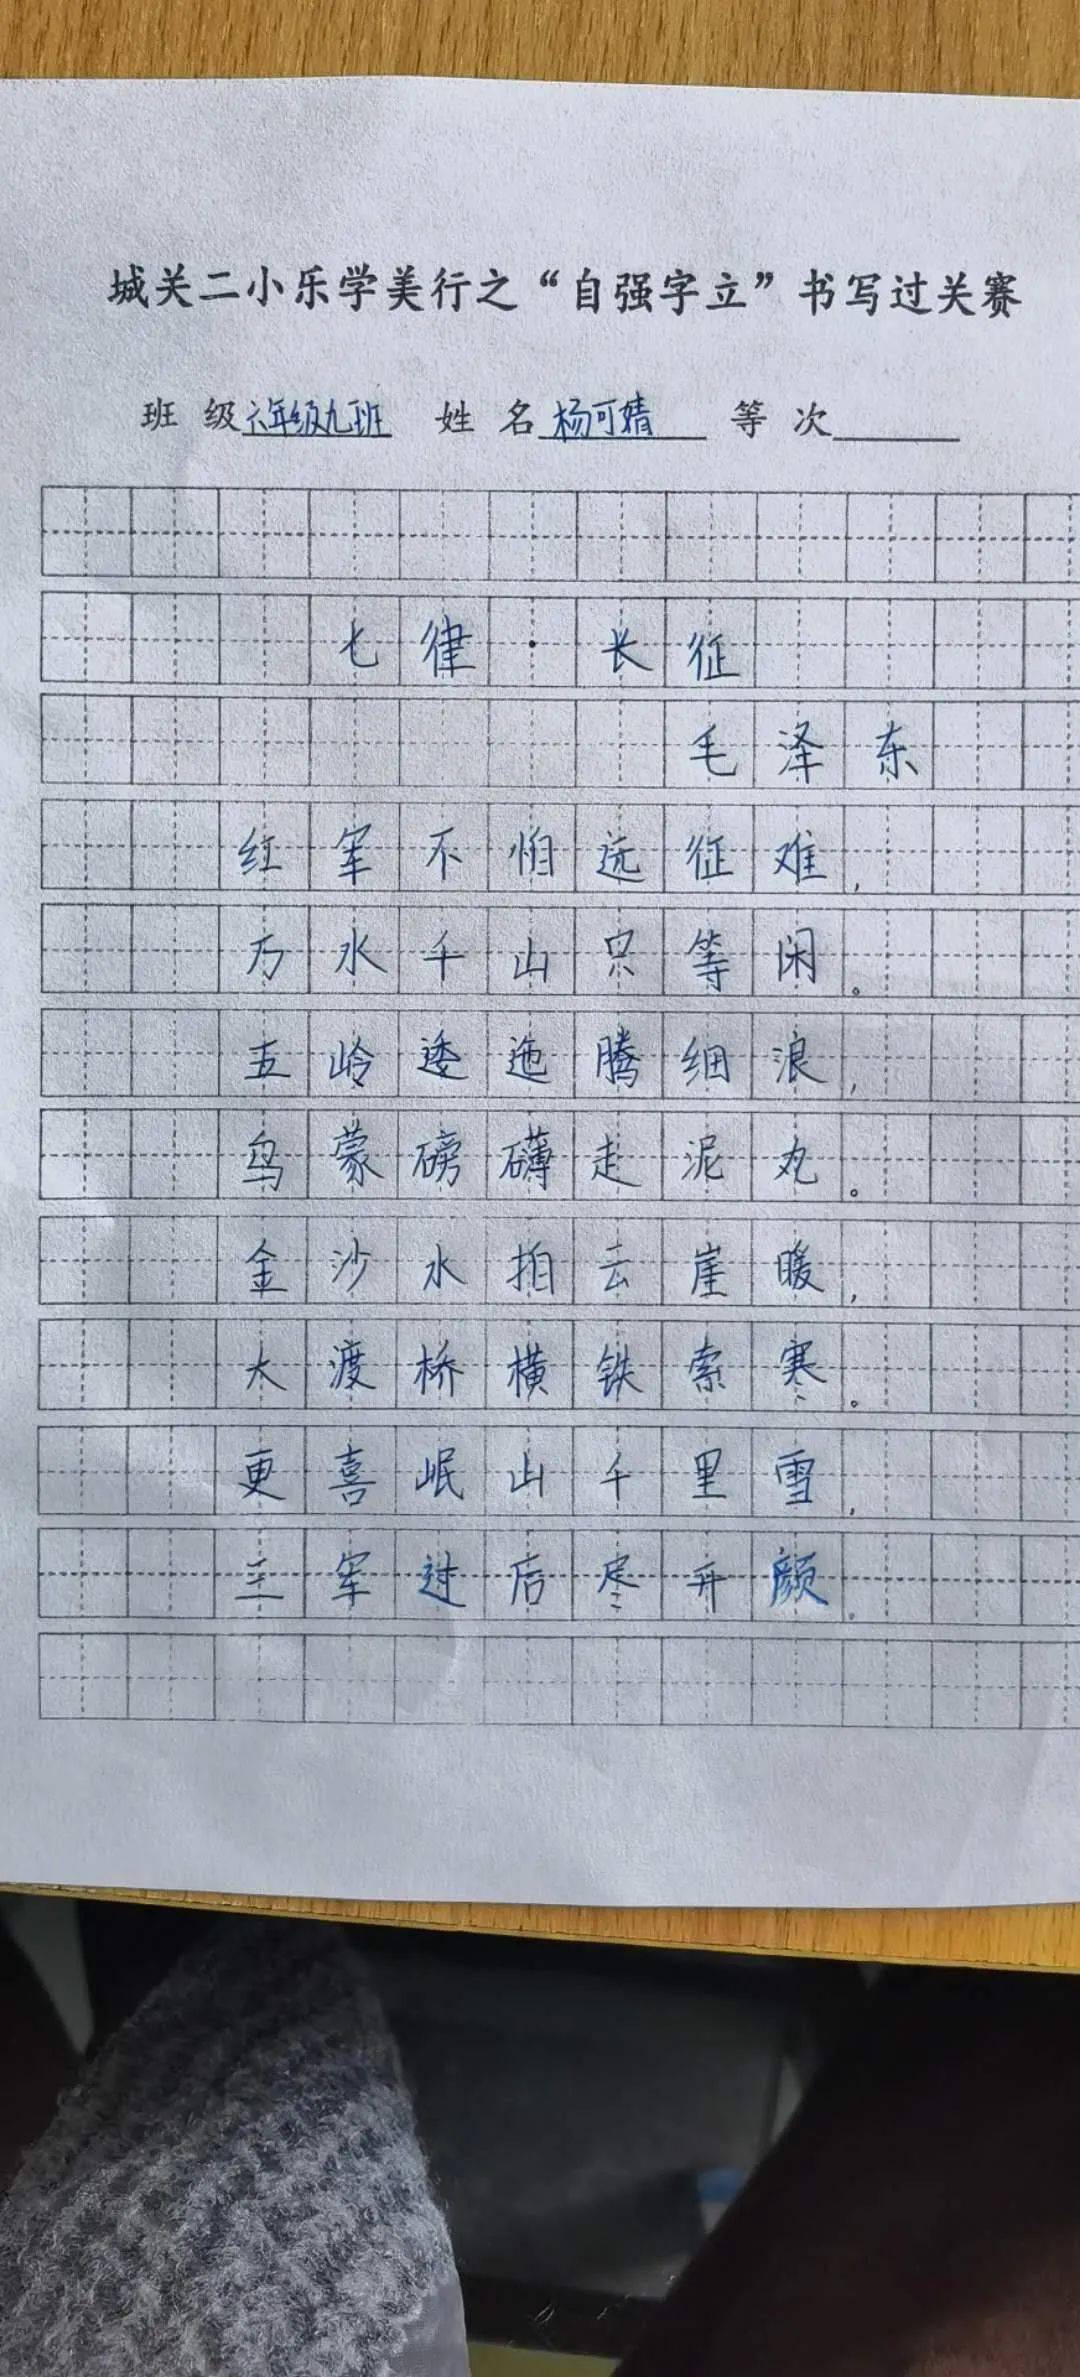 城关二小乐学美行之“自强字立”书写过关赛
班 级六年级九班 姓 名杨可婧 等 次
七律·长征
毛泽东
红军不怕远征难，
万水千山只等闲。
五岭逶迤腾细浪，
乌蒙磅礴走泥丸。
金沙水拍云崖暖，
大渡桥横铁索寒。
更喜岷山千里雪，
三军过后尽开颜。